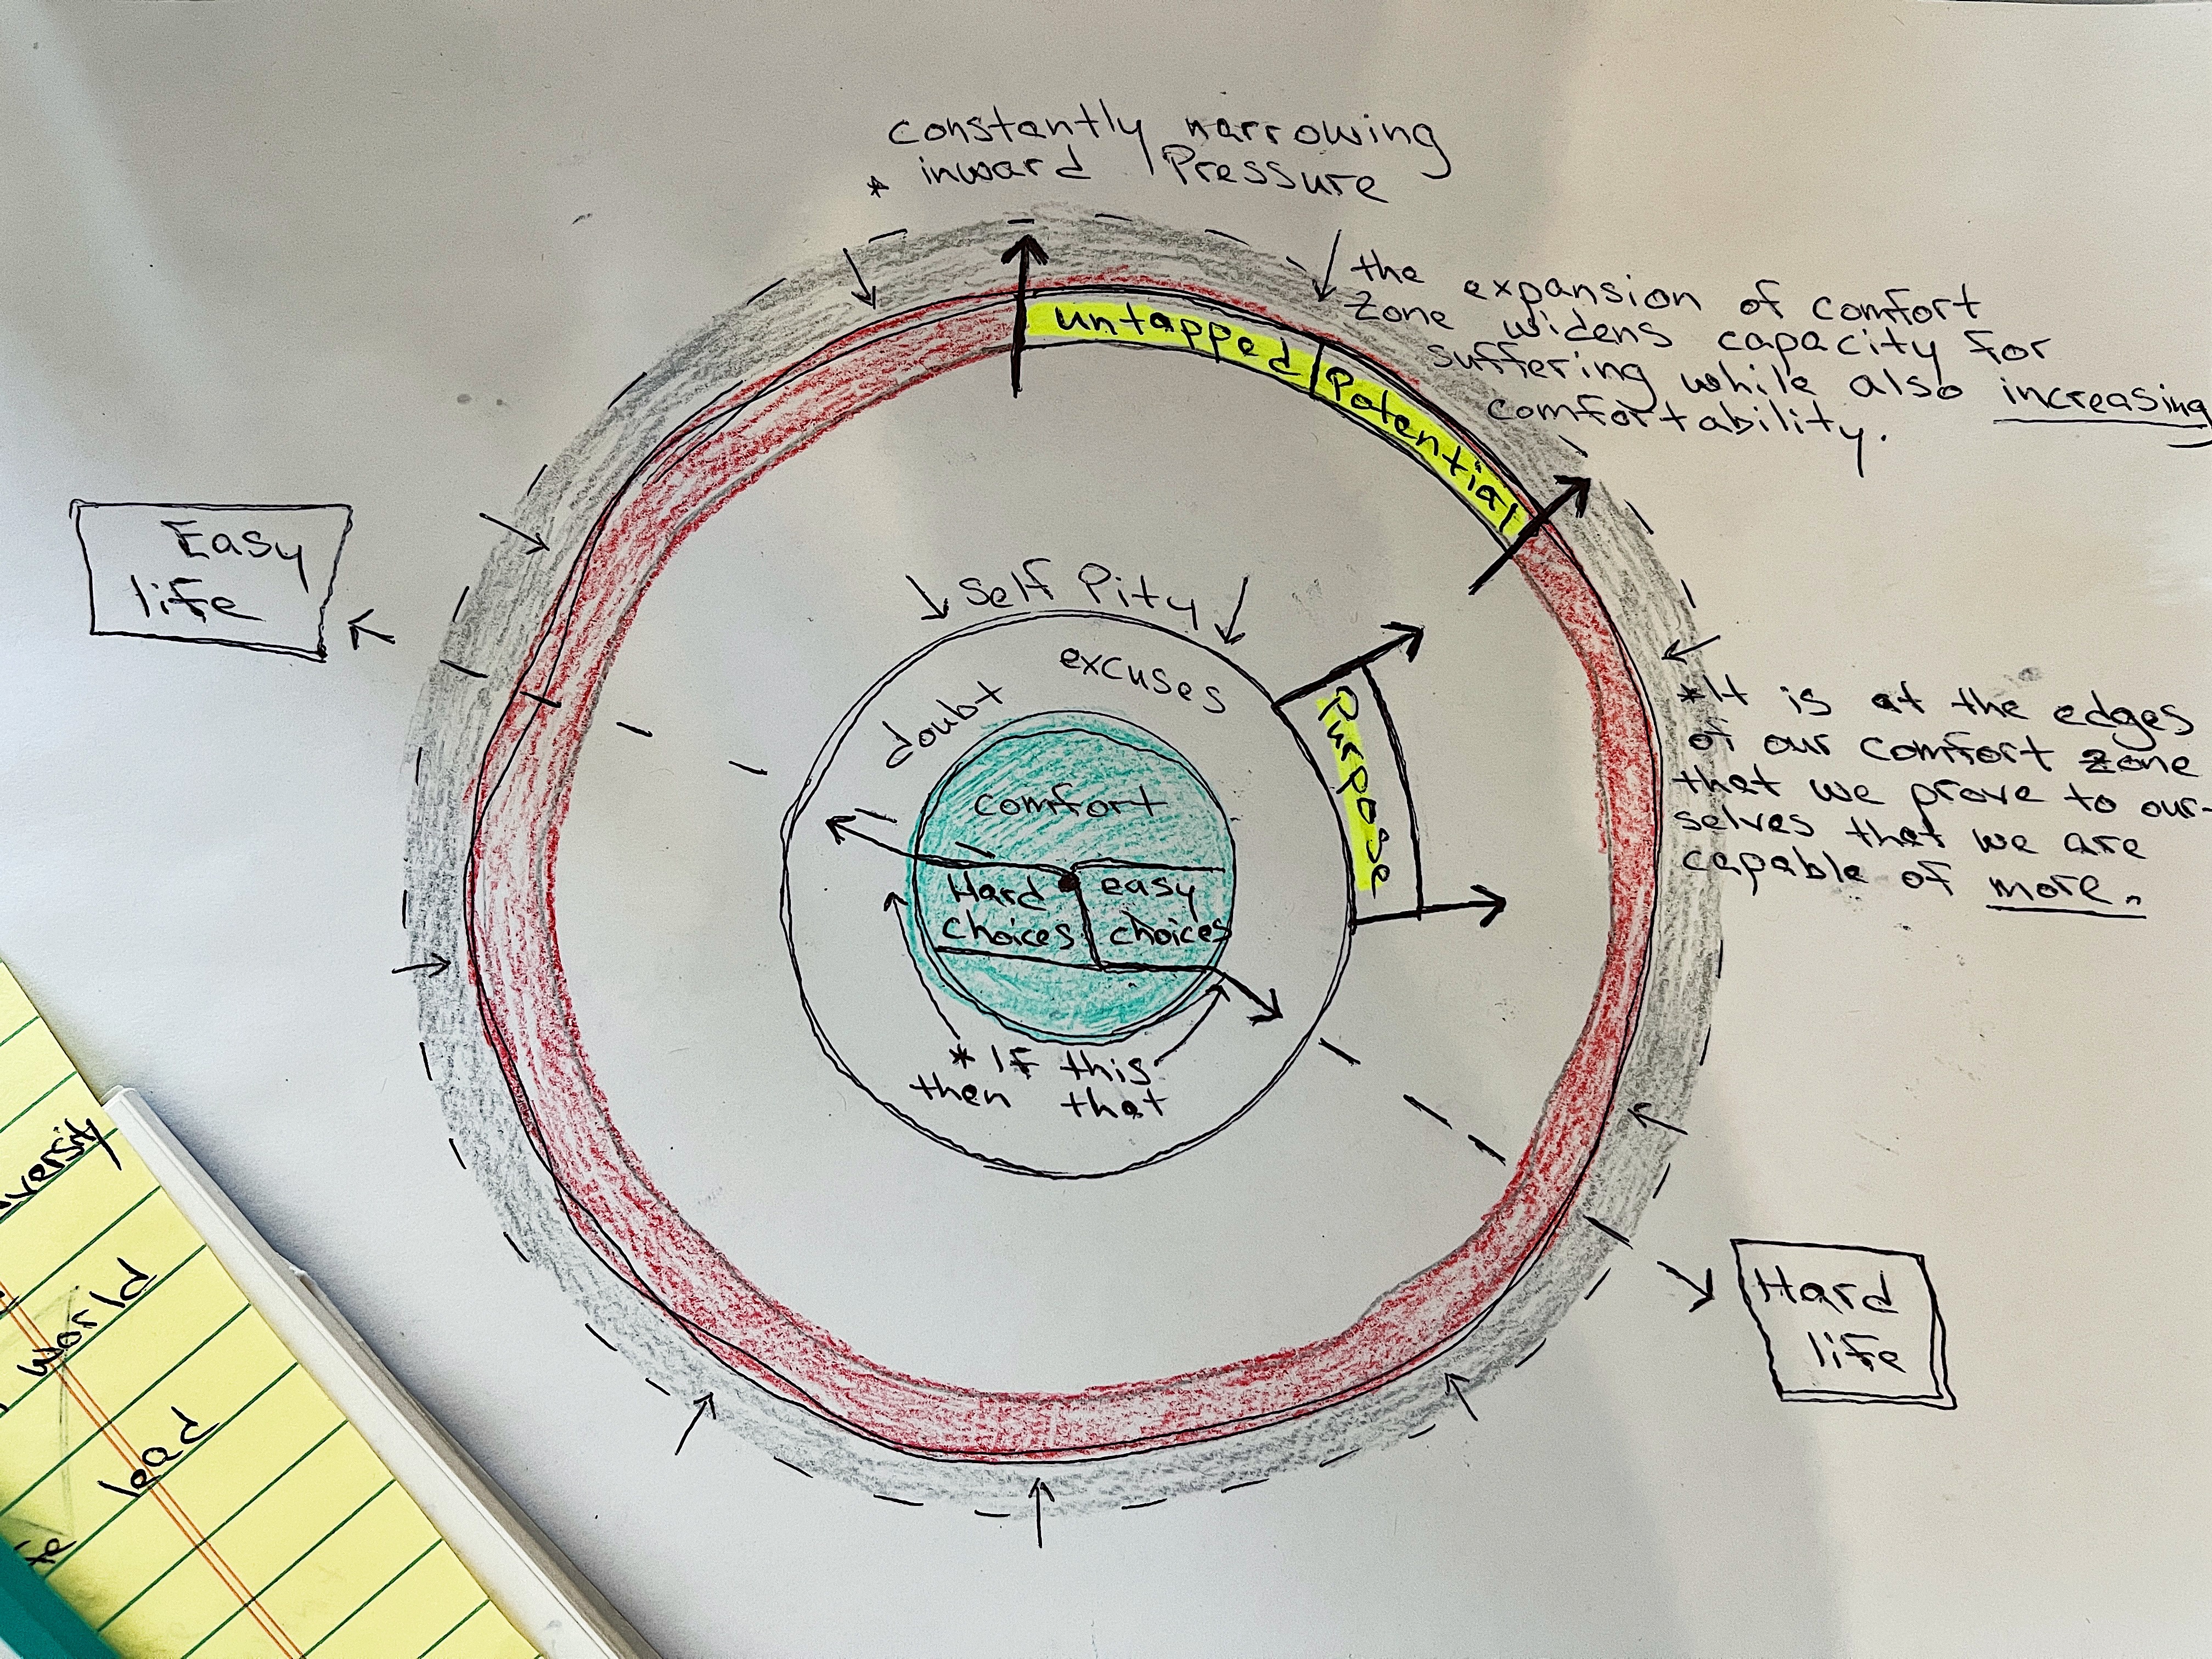 constantly narrowing
* inward pressure
the expansion of comfort
zone widens capacity for
suffering while also increasing
comfortability.
untapped Potential
Easy
life
Self Pity
excuses
doubt
Purpose
*It is at the edges
of our comfort zone
that we prove to our-
selves that we are
capable of more.
comfort
Hard
choices
easy
choices
* If this
then that
Hard
life
versity
world
lead